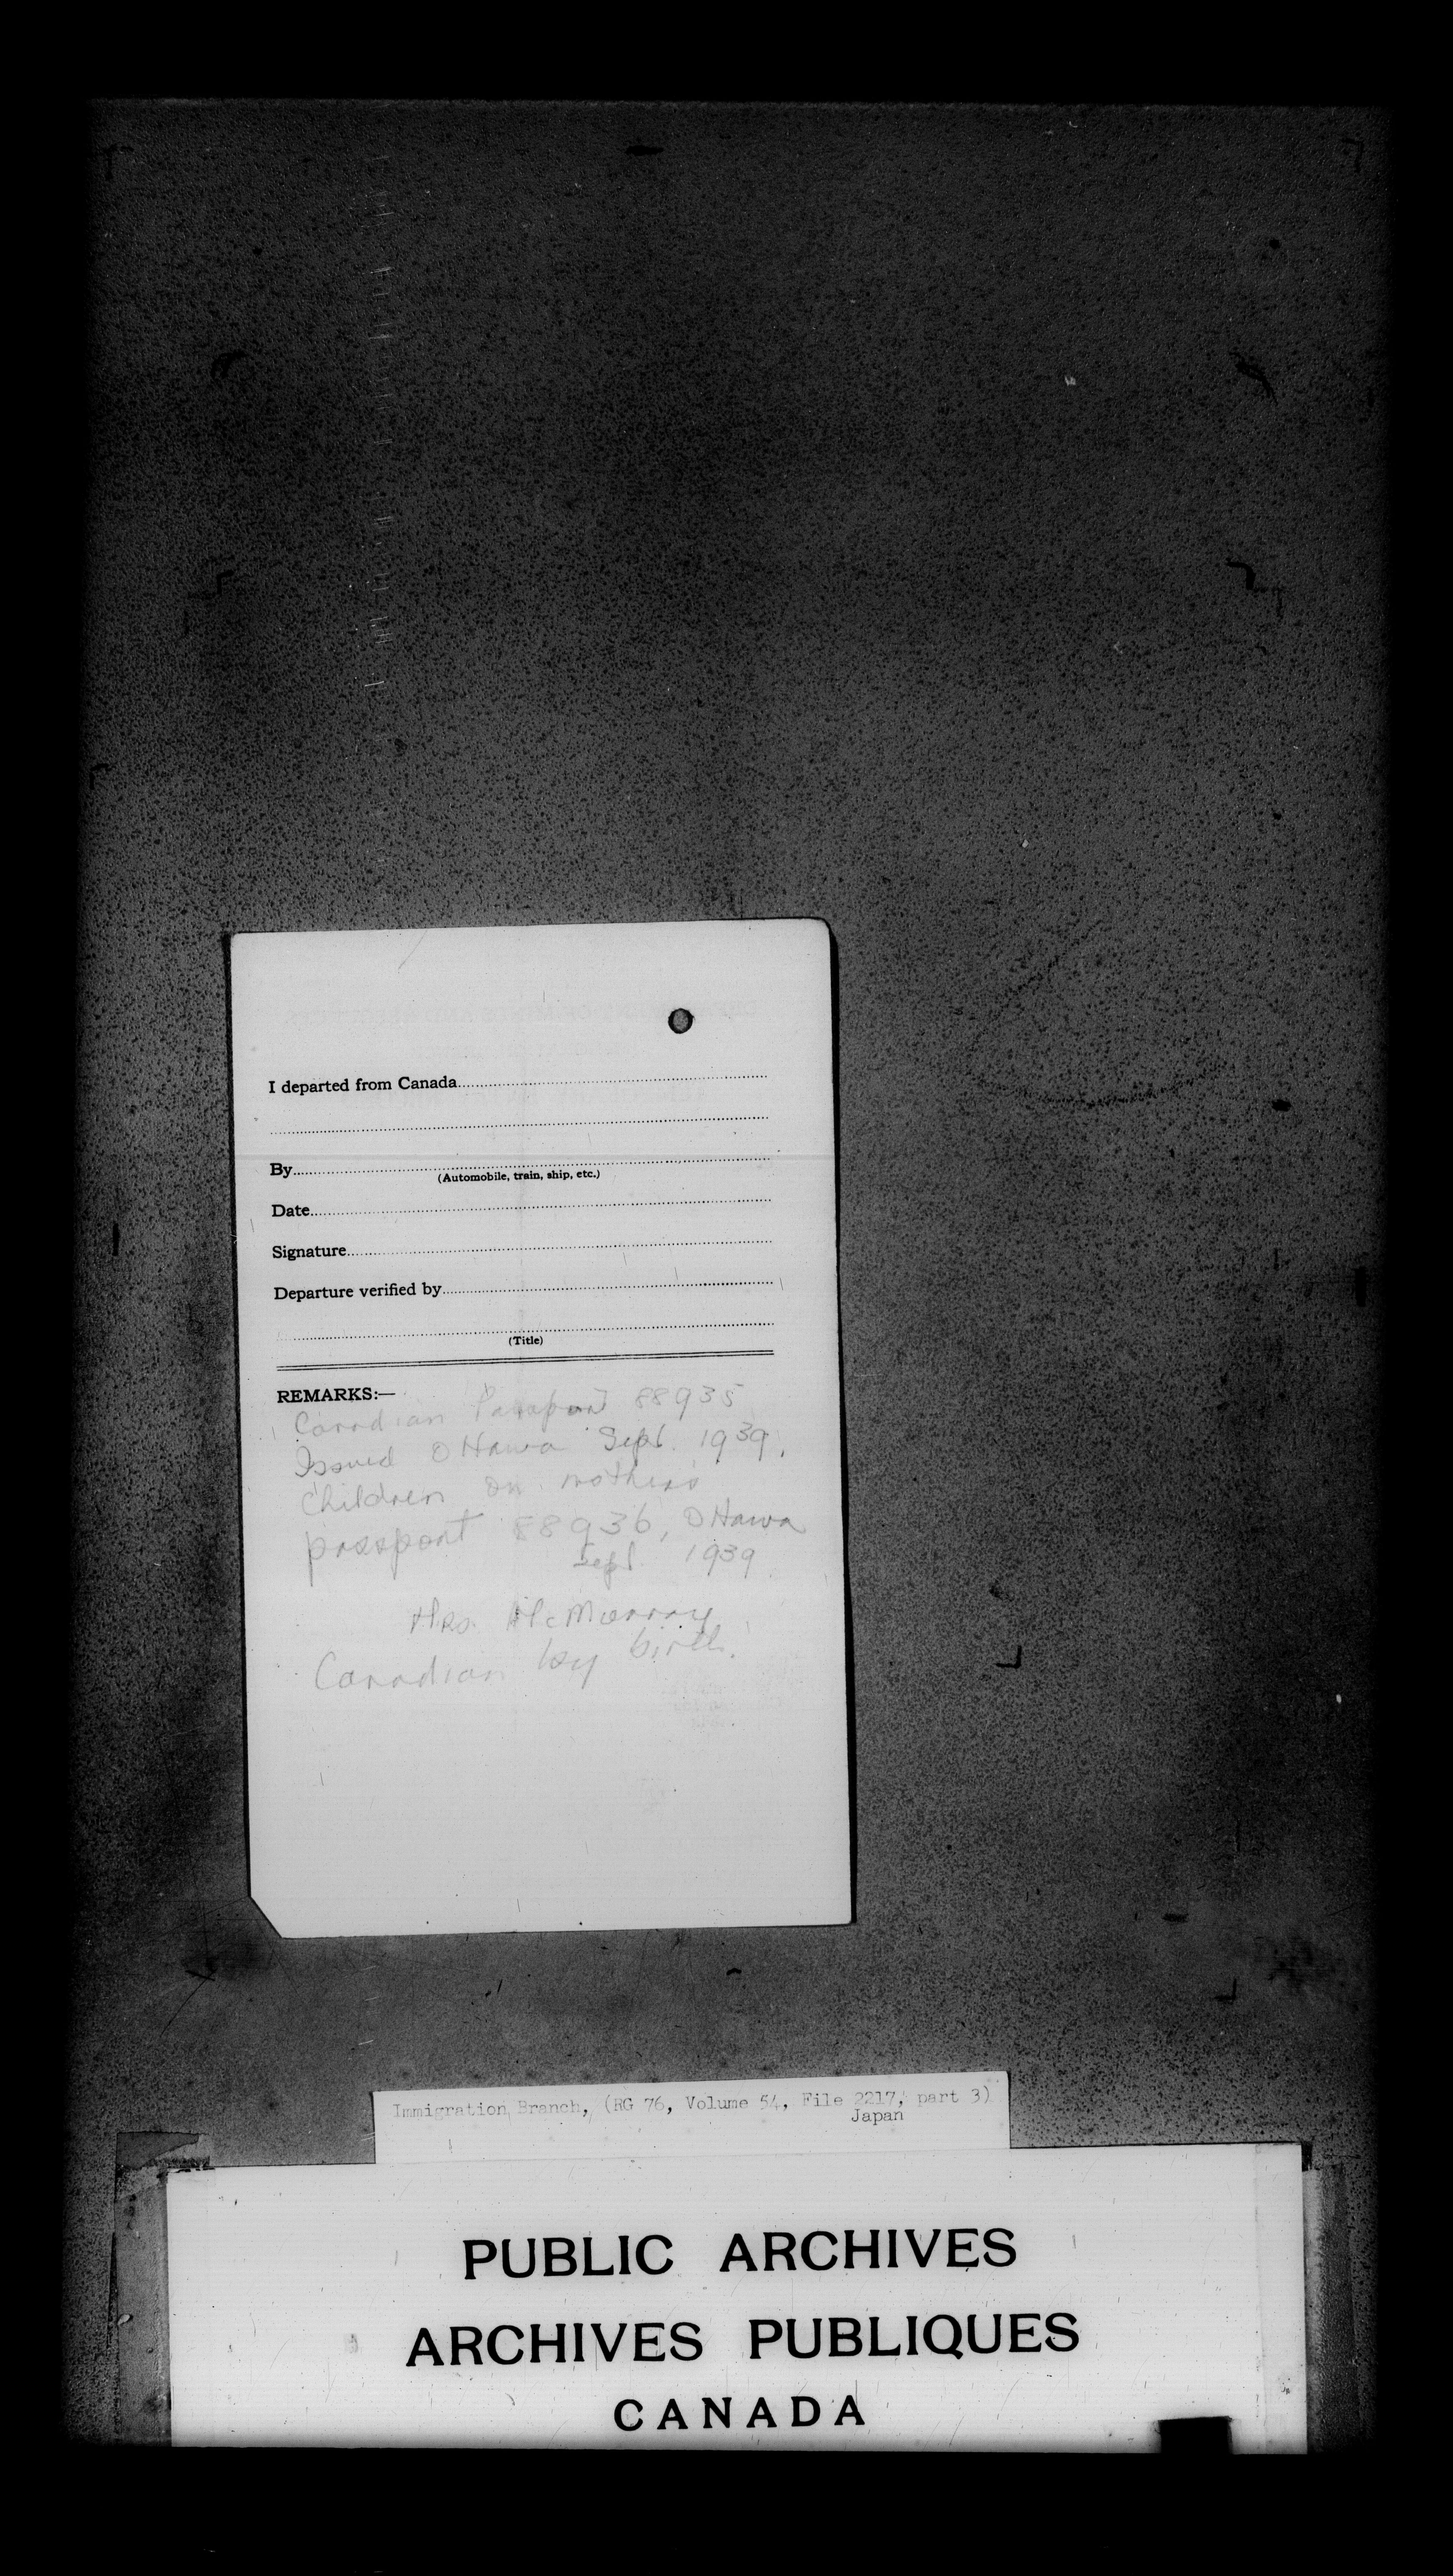 I departed from Canada
By
(Automobile, train, ship, etc.)
Date
Signature
Departure verified by
(Title)
REMARKS:—
Canadian Passport 88935
Issued Ottawa Sept. 1939.
Children on mothers
passport 88936, Ottawa
Sept. 1939
Mrs. McMurray
Canadian by birth.
Immigration Branch, (RG 76, Volume 54, File 2217, part 3)
Japan
PUBLIC ARCHIVES
ARCHIVES PUBLIQUES
CANADA